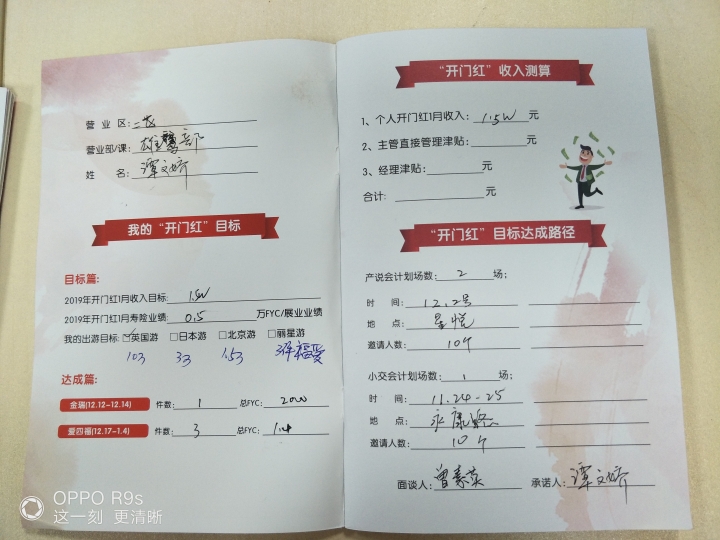 营业区：二总
营业部/课：雄鹰部
姓名：谭文娇
我的“开门红”目标
目标篇：
2019年开门红1月收入目标 1.5W
2019年开门红1月寿险业绩：0.5 万FYC/展业业绩
我的出游目标：☑英国游 □日本游 □北京游 □丽星游
103 33 1.53 3件福爱
达成篇：
金瑞(12.12-12.14) 件数：1 总FYC：2000
爱四福(12.17-1.4) 件数：3 总FYC：1.4
“开门红”收入测算
1、个人开门红1月收入：1.5W 元
2、主管直接管理津贴： 元
3、经理津贴： 元
合计： 元
“开门红”目标达成路径
产说会计划场数：2 场；
时间：12.2号
地点：星悦
邀请人数：10个
小交会计划场数：1 场；
时间：11.24-25
地点：永康路
邀请人数：10个
面谈人：曾素英 承诺人：谭文娇
OPPO R9s
这一刻 更清晰